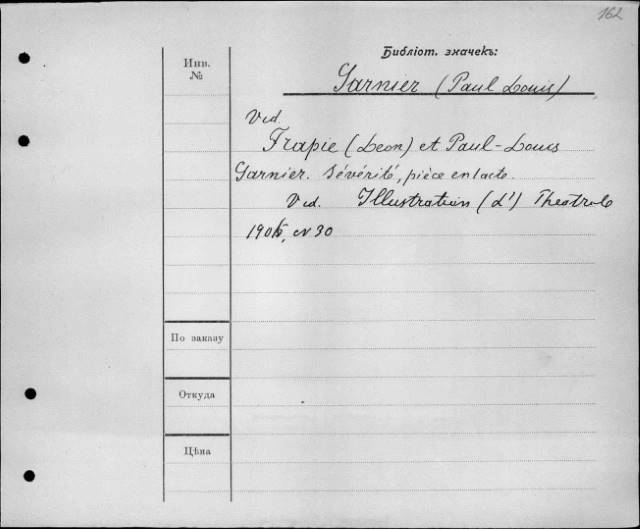 162
Библіот. значекъ:
Инв.
№
Garnier (Paul Louis)
Vid.
Frapie (Leon) et Paul-Louis
Garnier. Sévérité, pièce en 1 acte.
Vid. Illustration (L') Theatrale
1905, № 30
По заказу
Откуда
Цѣна